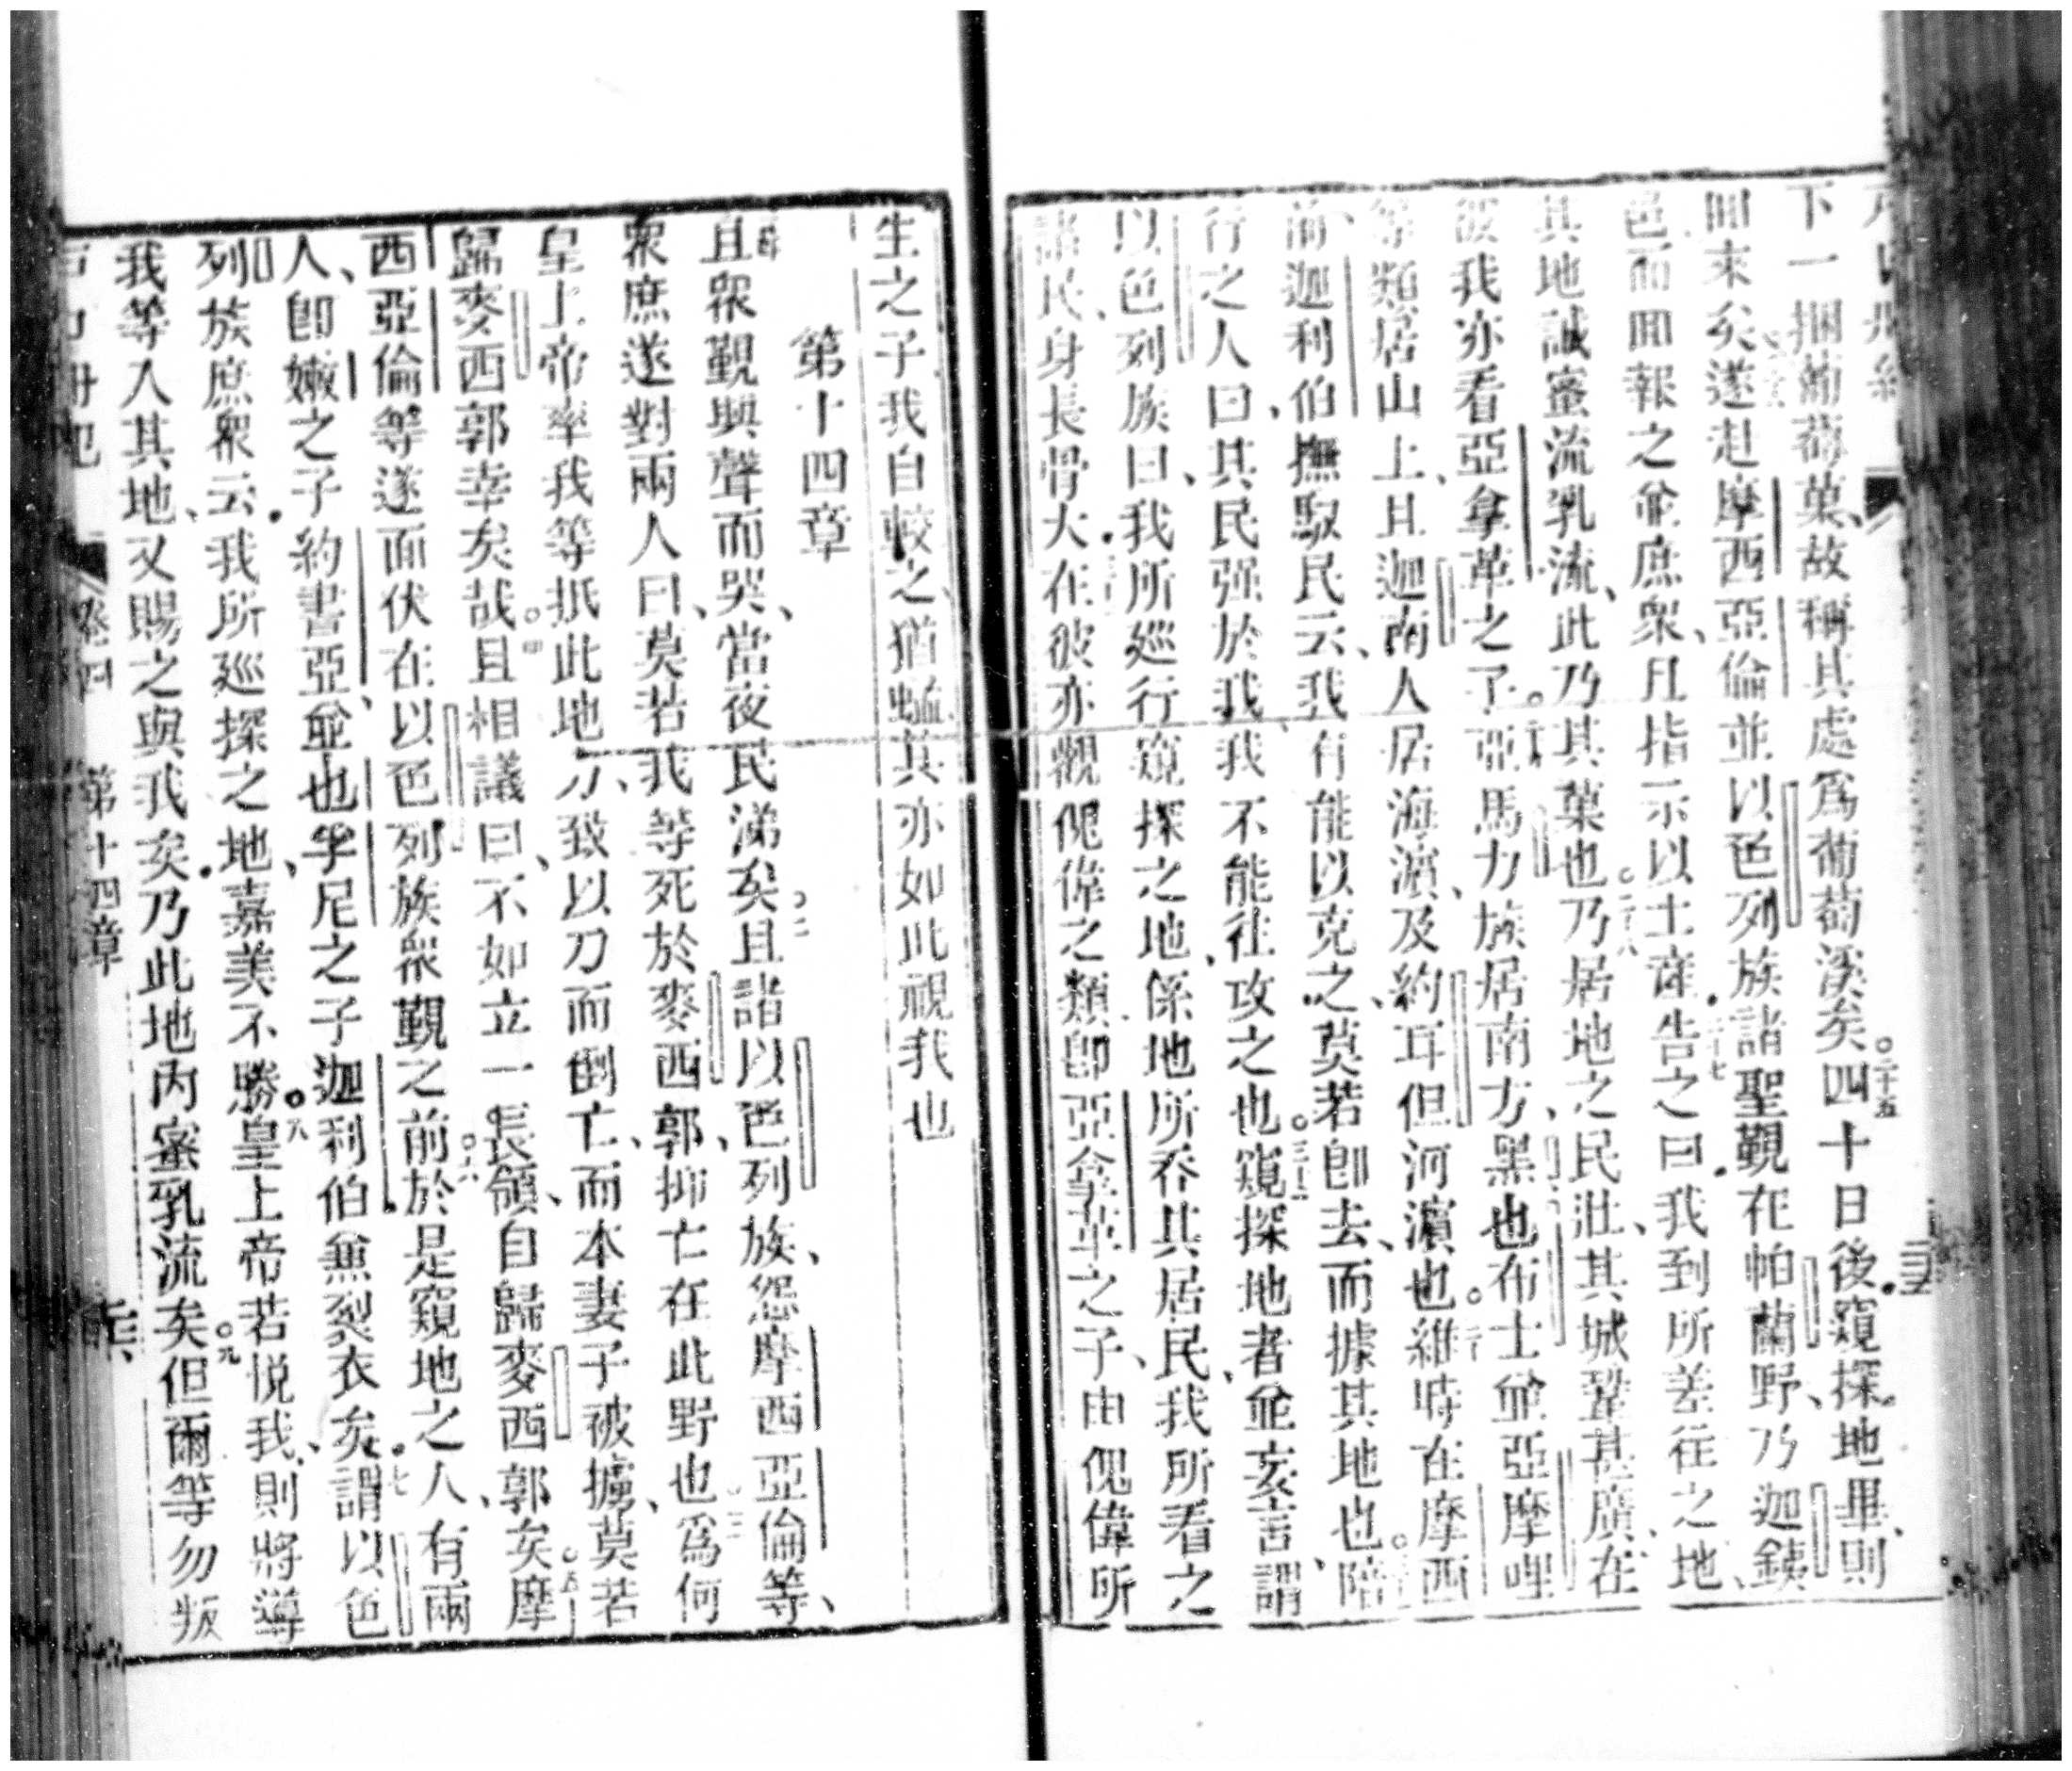 下一捆葡萄菓、故稱其處爲葡萄溪矣。二十五四十日後、窺探地畢、則
囬來矣、遂赴摩西亞倫並以色列族諸聖覲在帕蘭野、乃迦鉄
邑而囬報之並庶衆、且指示以土產。二十七告之曰、我到所差往之地、
其地誠蜜流乳流、此乃其菓也。二十八乃居地之民壯、其城鞏甚廣、在
彼我亦看亞拿革之子。亞馬力族居南方、黑也布士並亞摩哩
等類居山上、且迦南人居海濵、及約耳但河濵也。三十維時在摩西
前、迦利伯撫馭民云、我有能以克之、莫若卽去、而據其地也。陪
行之人曰、其民强於我、我不能往攻之也。三十二窺探地者並妄言謂
以色列族曰、我所巡行窺探之地、係地所吞其居民、我所看之
諸民、身長骨大。在彼亦觀傀偉之類、卽亞拿革之子、由傀偉所
生之子、我自較之、猶蜢、其亦如此視我也
第十四章
且衆覲與聲而哭、當夜民涕矣。二且諸以色列族、怨摩西亞倫等、
衆庶遂對兩人曰、莫若我等死於麥西郭、抑亡在此野也。三爲何
皇上帝率我等抵此地方、致以刀而倒亡、而本妻子被擄、莫若
歸麥西郭幸矣哉。四且相議曰、不如立一長領、自歸麥西郭矣。五摩
西亞倫等遂面伏在以色列族衆覲之前。六於是窺地之人、有兩
人、卽嫩之子約書亞、並也孚尼之子迦利伯、並裂衣矣。七謂以色
列族庶衆云、我所巡探之地、嘉美不勝。八皇上帝若悦我、則將導
我等入其地、又賜之與我矣。乃此地内蜜乳流矣。九但爾等勿叛
卷四 第十四章